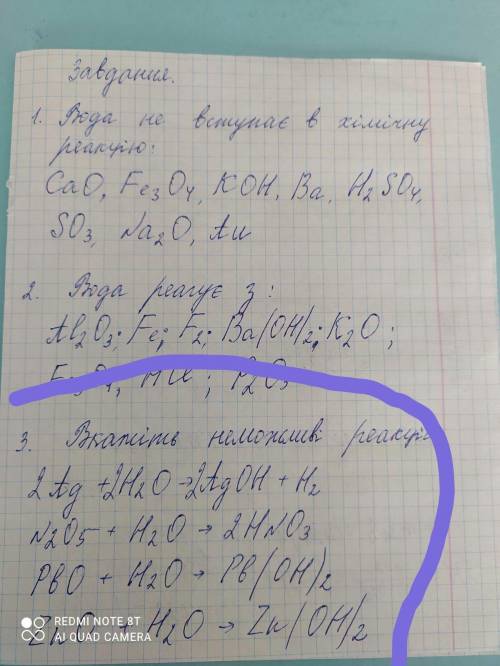 Завдання.
1. Вода не вступає в хімічну
реакцію:
CaO, Fe3O4, KOH, Ba, H2SO4,
SO3, Na2O, Au
2. Вода реагує з:
Al2O3; Fe; F2; Ba(OH)2; K2O;
Fe3O4, HCl; P2O3
3. Вкажіть неможливі реакції
2Ag + 2H2O → 2AgOH + H2
N2O5 + H2O → 2HNO3
PbO + H2O → Pb(OH)2
ZnO H2O → Zn(OH)2
REDMI NOTE 8T
AI QUAD CAMERA